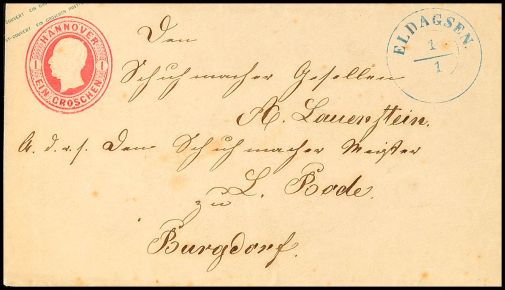 HANNOVER
1 1
EIN GROSCHEN
ELDAGSEN.
1
1
Den
Schuhmacher Gesellen
A. Lauenstein.
A. d. r. f. Dem Schuhmacher Meister
L. Bode.
zu
Burgdorf.